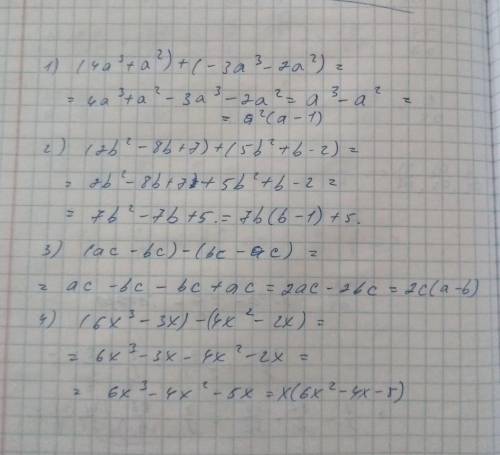 1) (4a³+a²)+(-3a³-2a²)=
= 4a³+a²-3a³-2a²= a³-a² =
= a²(a-1)
2) (2b²-8b+7)+(5b²+b-2)=
= 2b²-8b+7+5b²+b-2=
= 7b²-7b+5.= 7b(b-1)+5.
3) (ac-bc)-(bc-ac) =
= ac-bc-bc+ac=2ac-2bc=2c(a-b)
4) (6x³-3x)-(4x²-2x)=
= 6x³-3x-4x²-2x =
= 6x³-4x²-5x=x(6x²-4x-5)